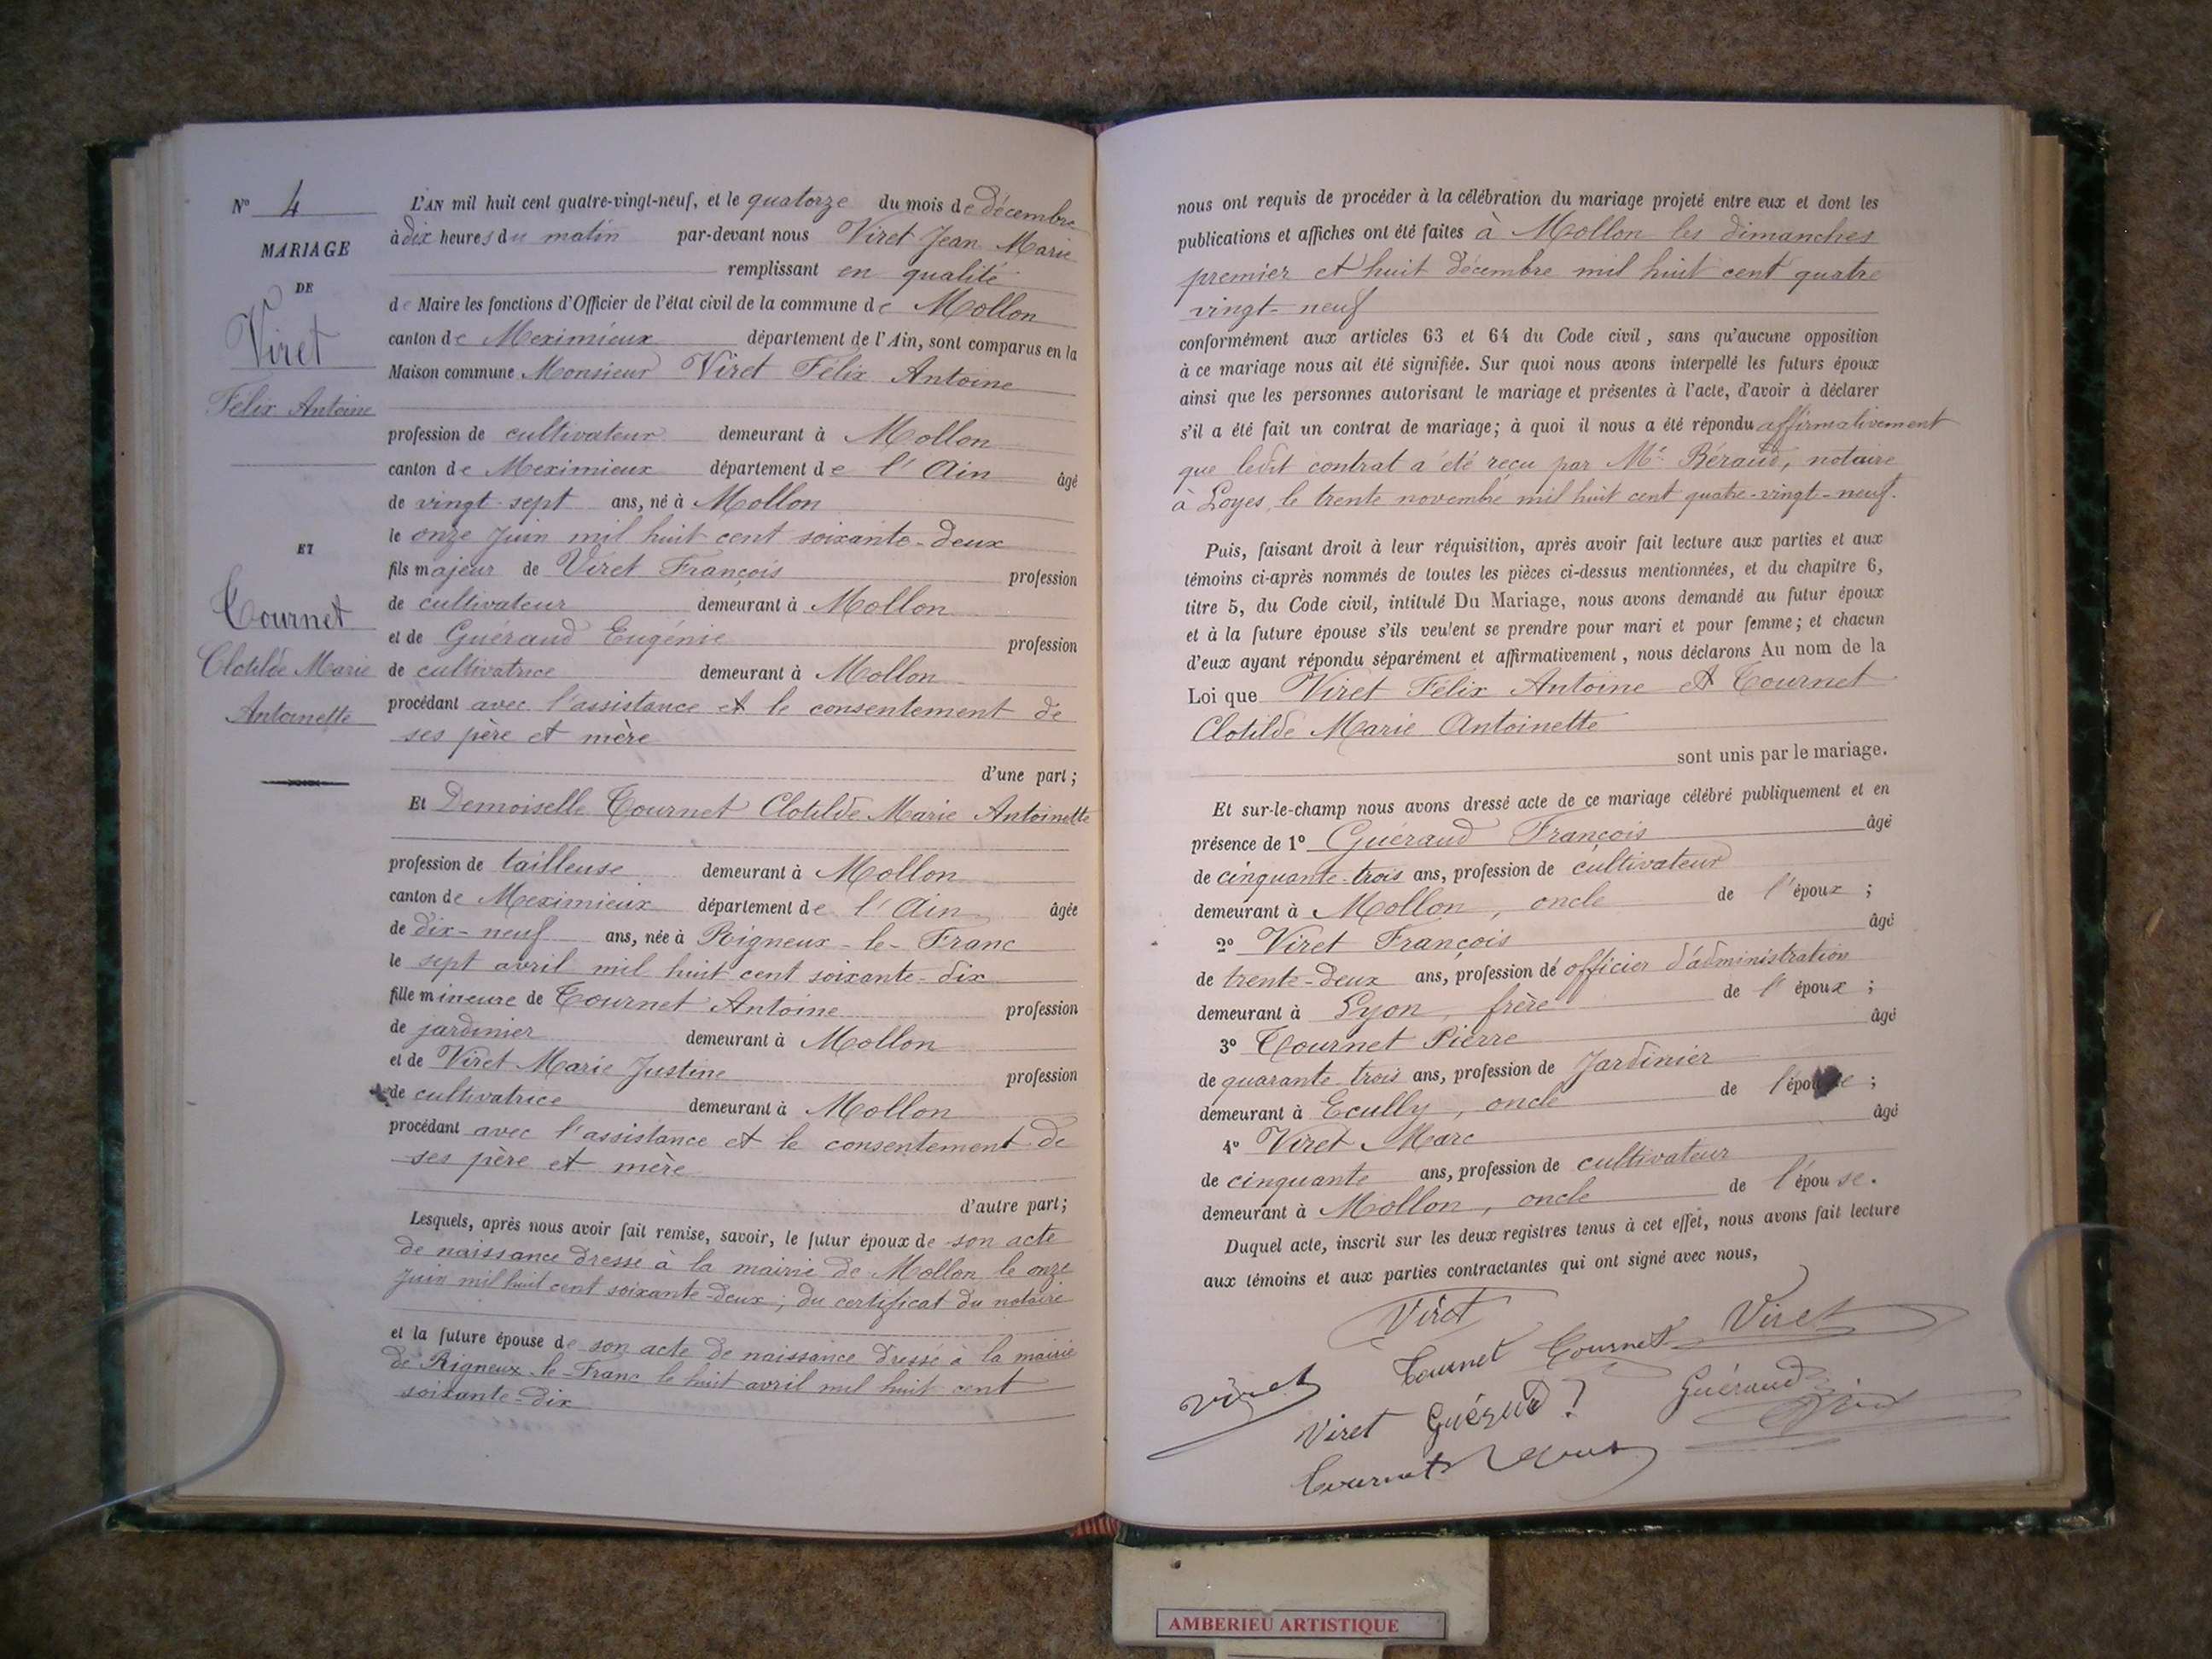 N° 4
MARIAGE
DE
Viret
Félix Antoine
ET
Tournet
Clotilde Marie
Antoinette
L'AN mil huit cent quatre-vingt-neuf, et le quatorze du mois de décembre
à dix heures du matin par-devant nous Viret Jean Marie
remplissant en qualité
de Maire les fonctions d'Officier de l'état civil de la commune de Mollon
canton de Meximieux département de l'Ain, sont comparus en la
Maison commune Monsieur Viret Félix Antoine
profession de cultivateur demeurant à Mollon
canton de Meximieux département de l'Ain âgé
de vingt-sept ans, né à Mollon
le onze Juin mil huit cent soixante-deux
fils majeur de Viret François profession
de cultivateur demeurant à Mollon
et de Guéraud Eugénie profession
de cultivatrice demeurant à Mollon
procédant avec l'assistance et le consentement de
ses père et mère
d'une part;
Et Demoiselle Tournet Clotilde Marie Antoinette
profession de tailleuse demeurant à Mollon
canton de Meximieux département de l'Ain âgée
de dix-neuf ans, née à Rigneux-le-Franc
le sept avril mil huit cent soixante-dix
fille mineure de Tournet Antoine profession
de jardinier demeurant à Mollon
et de Viret Marie Justine profession
de cultivatrice demeurant à Mollon
procédant avec l'assistance et le consentement de
ses père et mère
d'autre part;
Lesquels, après nous avoir fait remise, savoir, le futur époux de son acte
de naissance dressé à la mairie de Mollon le onze
Juin mil huit cent soixante-deux; du certificat du notaire
et la future épouse de son acte de naissance dressé à la mairie
de Rigneux-le-Franc le huit avril mil huit cent
soixante-dix
nous ont requis de procéder à la célébration du mariage projeté entre eux et dont les
publications et affiches ont été faites à Mollon les dimanches
premier et huit décembre mil huit cent quatre
vingt-neuf
conformément aux articles 63 et 64 du Code civil, sans qu'aucune opposition
à ce mariage nous ait été signifiée. Sur quoi nous avons interpellé les futurs époux
ainsi que les personnes autorisant le mariage et présentes à l'acte, d'avoir à déclarer
s'il a été fait un contrat de mariage; à quoi il nous a été répondu affirmativement
que ledit contrat a été reçu par Me Béraud, notaire
à Loyes, le trente novembre mil huit cent quatre-vingt-neuf.
Puis, faisant droit à leur réquisition, après avoir fait lecture aux parties et aux
témoins ci-après nommés de toutes les pièces ci-dessus mentionnées, et du chapitre 6,
titre 5, du Code civil, intitulé Du Mariage, nous avons demandé au futur époux
et à la future épouse s'ils veulent se prendre pour mari et pour femme; et chacun
d'eux ayant répondu séparément et affirmativement, nous déclarons Au nom de la
Loi que Viret Félix Antoine et Tournet
Clotilde Marie Antoinette
sont unis par le mariage.
Et sur-le-champ nous avons dressé acte de ce mariage célébré publiquement et en
présence de 1° Guéraud François âgé
de cinquante-trois ans, profession de cultivateur
demeurant à Mollon, oncle de l'époux;
2° Viret François âgé
de trente-deux ans, profession de officier d'administration
demeurant à Lyon, frère de l'époux;
3° Tournet Pierre âgé
de quarante-trois ans, profession de Jardinier
demeurant à Ecully, oncle de l'épouse;
4° Viret Marc âgé
de cinquante ans, profession de cultivateur
demeurant à Mollon, oncle de l'épouse.
Duquel acte, inscrit sur les deux registres tenus à cet effet, nous avons fait lecture
aux témoins et aux parties contractantes qui ont signé avec nous,
Viret
Tournet Tournet Viret
Viret
Viret Guéraud
Guéraud
Tournet
AMBERIEU ARTISTIQUE